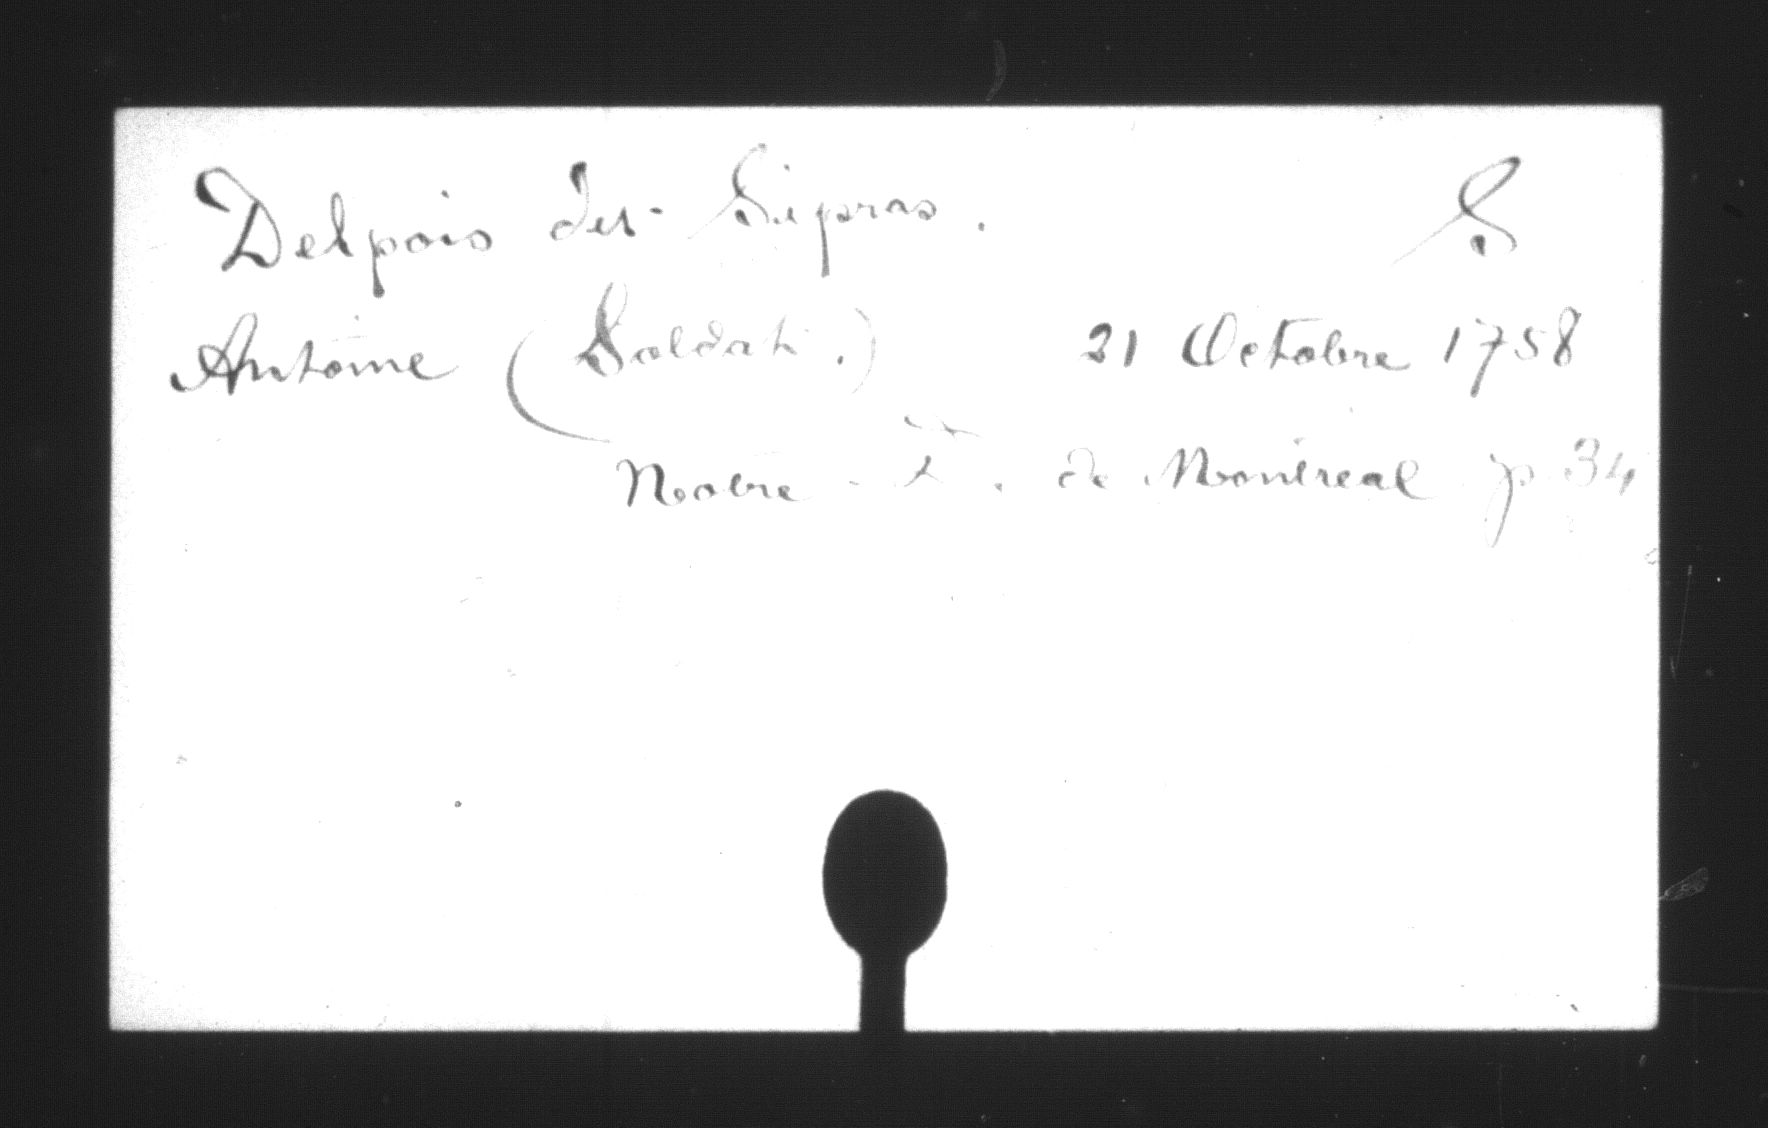 Delpois dit Sipras. S
Antoine (Soldat.) 21 Octobre 1758
Notre - D. de Montreal p 34